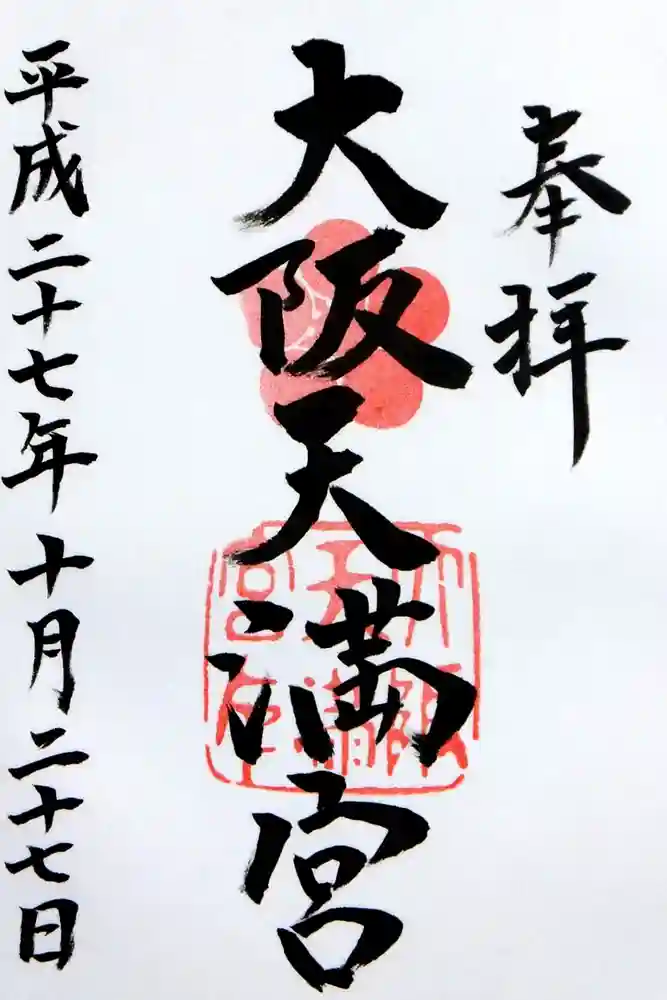 奉拝
大阪天満宮
平成二十七年十月二十七日